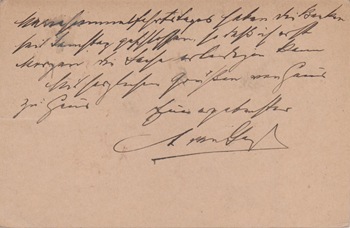 Mariähimmelfahrtstages haben die Banken
seit Samstag geschlossen, so daß ich erst
Morgen die Sache erledigen kann
Mit herzlichen Grüßen von Haus
zu Haus Ihr ergebenster